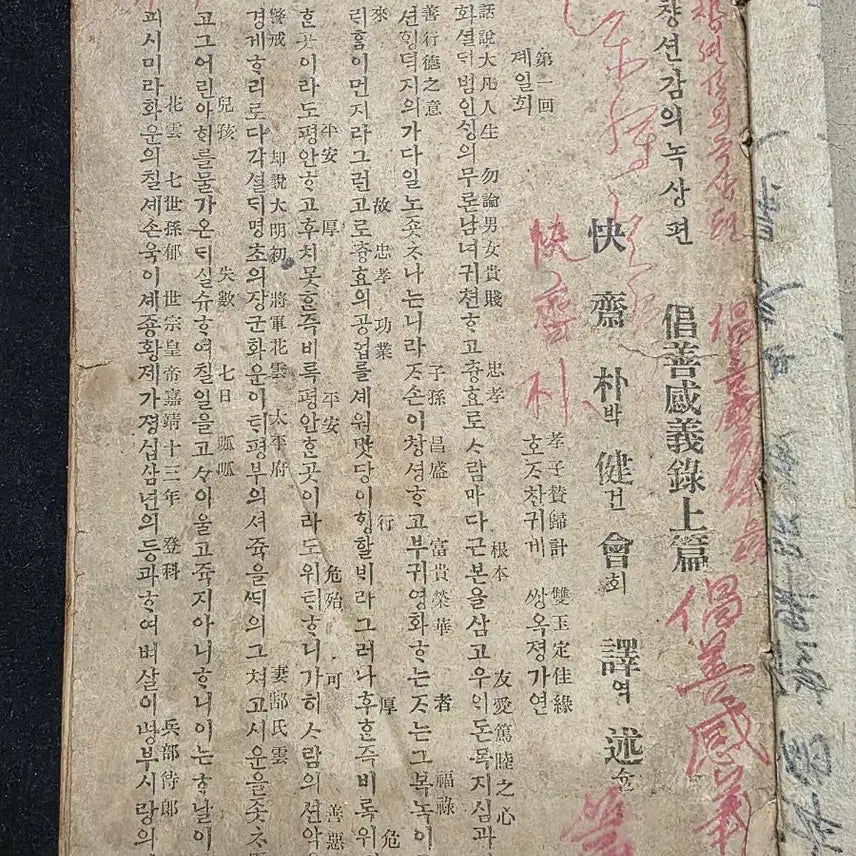 倡善感義
창션감의녹상편 倡善感義錄上篇
快齋朴박健건會회譯역述술
快齋朴
孝子賛歸計 雙玉定佳緣
호ᄌᆞ찬귀게 쌍옥졍가연
第一回
제일회
話說大凡人生 勿論男女貴賤 忠孝 根本 友愛篤睦之心
화셜ᄃᆡ범인ᄉᆡᆼ의무론남녀귀쳔ᄒᆞ고츙효로ᄉᆞ람마다근본을삼고우ᄋᆡ돈목지심과
善行德之意 子孫昌盛 富貴榮華 者 福祿
션ᄒᆡᆼ덕지의가다일노좃ᄎᆞ나는니라ᄌᆞ손이창셩ᄒᆞ고부귀영화ᄒᆞ는ᄌᆞ는그복녹이
來 故 忠孝 功業 行 厚 危
ᄅᆡ흠이먼지라그런고로츙효의공업를셰워맛당이ᄒᆡᆼ할비라그러나후ᄒᆞᆫ즉비록위
平安 厚 平安 危殆 可 善惡
ᄒᆞᆫ곳이라도평안ᄒᆞ고후치못ᄒᆞᆫ즉비록평안ᄒᆞᆫ곳이라도위ᄐᆡᄒᆞ니가히ᄉᆞ람의션악
警戒 却說大明初 將軍花雲 太平府 妻郜氏雲
경계ᄒᆞ리로다각셜ᄃᆡ명초의장군화운이ᄐᆡ평부의셔쥭을ᄯᆡ의그쳐고시운을좃ᄎᆞ
兒孩 失數 七日 呱呱
고그어린아ᄒᆡ를물가온ᄃᆡ실슈ᄒᆞ여칠일을고고아울고쥭지아니ᄒᆞ니이는ᄒᆞ날이
花雲 七世孫郁 世宗皇帝嘉靖十三年 登科 兵部侍郎
괴시미라화운의칠셰손욱이셰죵황제가졍십삼년의등과ᄒᆞ여벼살이병부시랑의